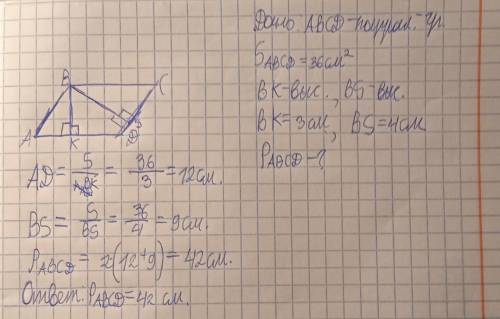 Дано ABCD-паралл.-гр
S ABCD = 36 см²
BK=выс. , BS=выс.
BK = 3см, BS=4см
P ABCD - ?
B C
A K D S
AD = S/BK = 36/3 = 12см.
BS = S/BS = 36/4 = 9см.
P ABCD = 2(12+9) = 42см.
Ответ: P ABCD = 42 см.